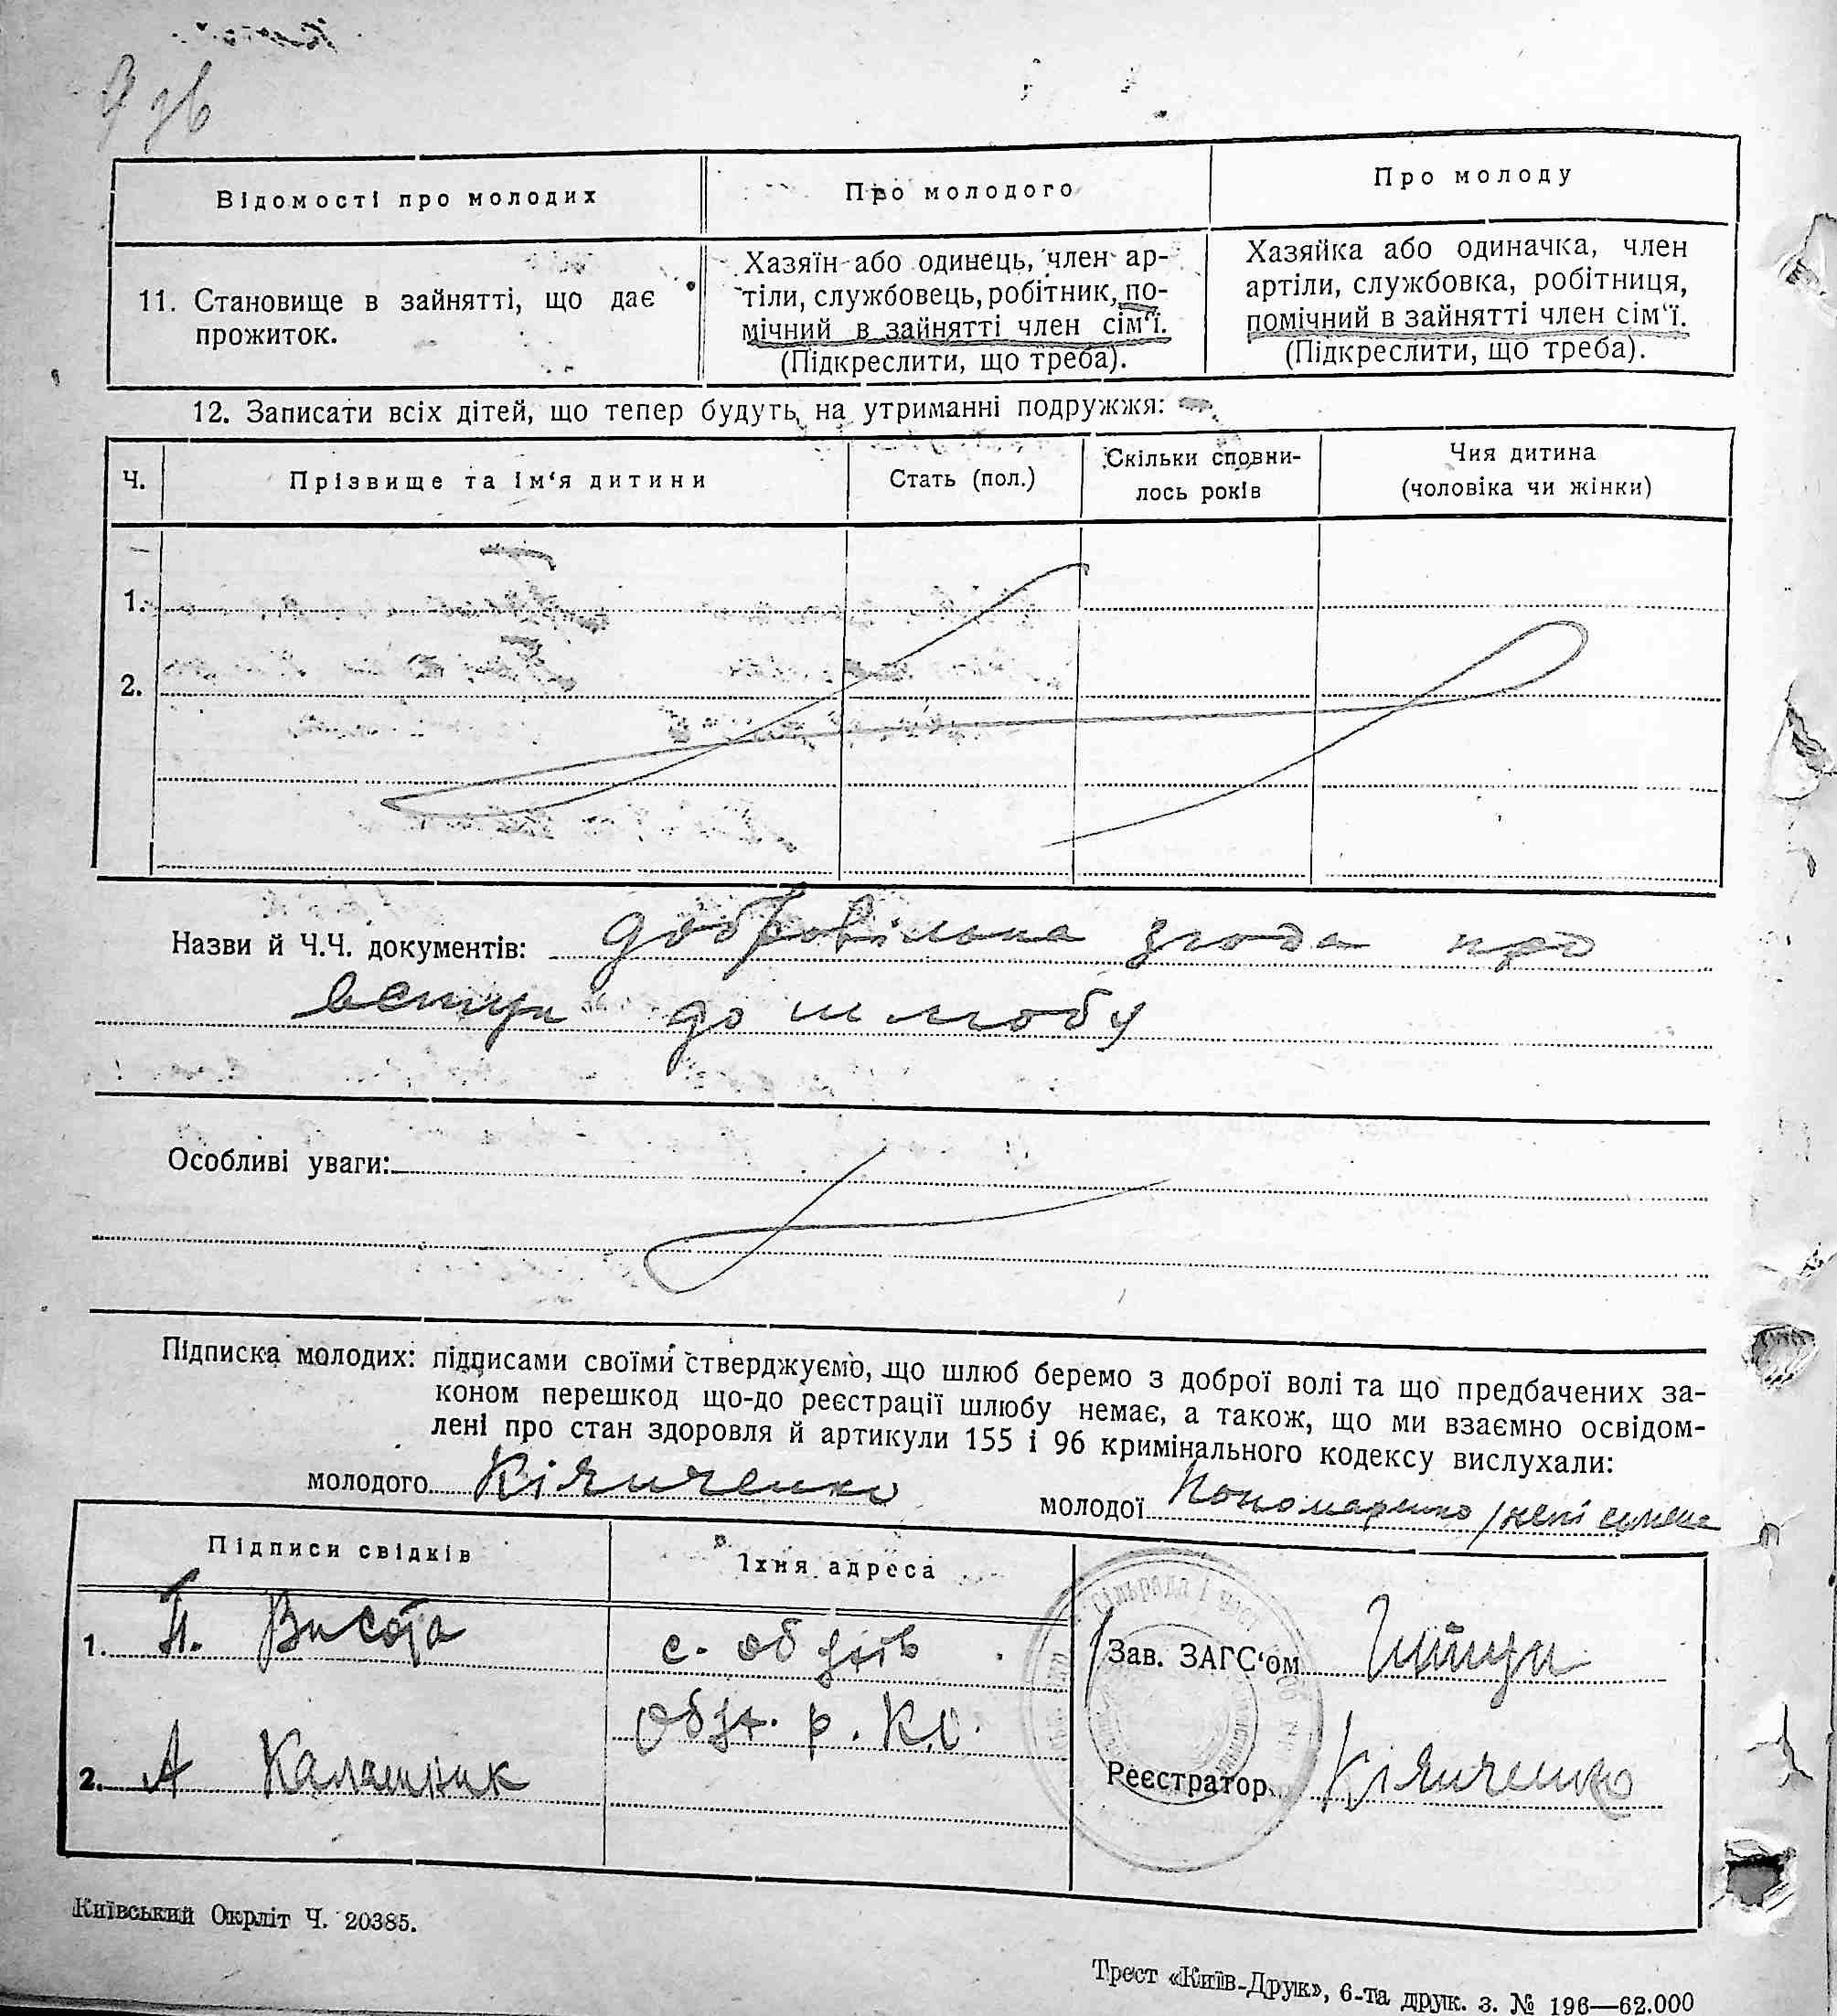 9 зв
Відомості про молодих
Про молодого
Про молоду
11. Становище в зайнятті, що дає
прожиток.
Хазяїн або одинець, член ар-
тіли, службовець, робітник, по-
мічний в зайнятті член сім‘ї.
(Підкреслити, що треба).
Хазяйка або одиначка, член
артіли, службовка, робітниця,
помічний в зайнятті член сім‘ї.
(Підкреслити, що треба).
12. Записати всіх дітей, що тепер будуть на утриманні подружжя:
Ч.
Прізвище та ім‘я дитини
Стать (пол.)
Скільки сповни-
лось років
Чия дитина
(чоловіка чи жінки)
1.
2.
Назви й Ч.Ч. документів: добровільна згода про
вступ до шлюбу
Особливі уваги:
Підписка молодих: підписами своїми стверджуємо, що шлюб беремо з доброї волі та що предбачених за-
коном перешкод що-до реєстрації шлюбу немає, а також, що ми взаємно освідом-
лені про стан здоровля й артикули 155 і 96 кримінального кодексу вислухали:
молодого Кіяниченко
молодої Пономаренко
Підписи свідків
Їхня адреса
1. П. Висота
с. Обухів
Зав. ЗАГС‘ом
Обух. р. К.О.
2. А Калашник
Реєстратор Кіяниченко
Київський Окрліт Ч. 20385.
Трест «Київ-Друк», 6-та друк. з. № 196—62.000